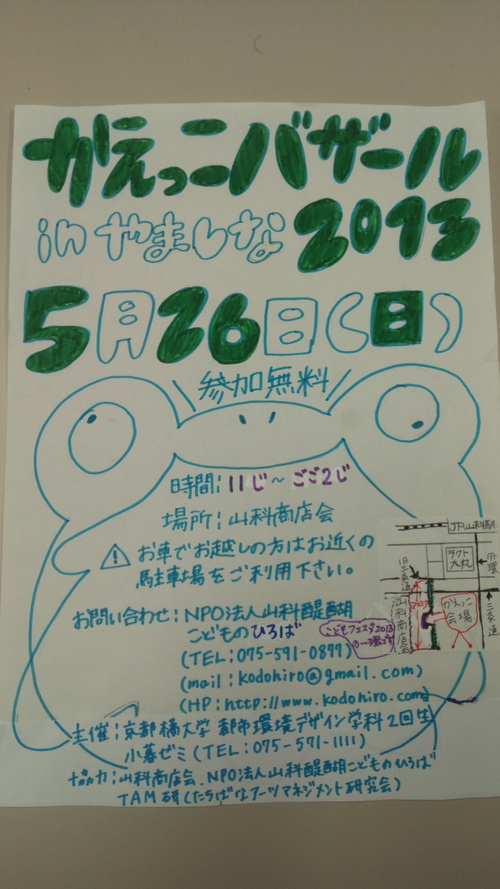 かえっこバザール
in やましな 2013
5月26日(日)
参加無料
時間:11じ～ごご2じ
場所:山科商店会
⚠ お車でお越しの方はお近くの
駐車場をご利用下さい。
お問い合わせ:NPO法人山科醍醐
こどものひろば
(TEL:075-591-0877)
(mail:kodohiro@gmail.com)
(HP:http://www.kodohiro.com)
こどもフェスタ2013
の一環です
JR山科駅
ラクト
大丸
外環
旧三条通
三条通
山科商店会
かえっこ
会場
主催:京都橘大学 都市環境デザイン学科2回生
小暮ゼミ(TEL:075-571-1111)
協力:山科商店会、NPO法人山科醍醐こどものひろば
TAM研(たちばなアーツマネジメント研究会)